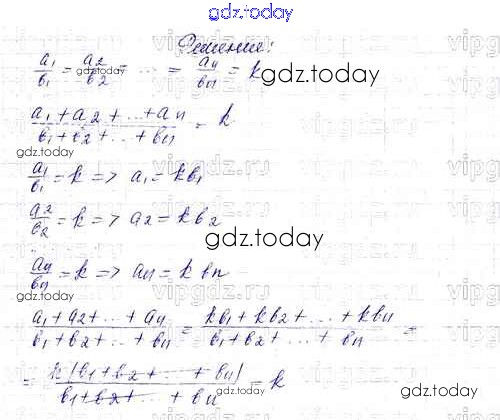 gdz.today
Решение:
a₁/b₁ = a₂/b₂ = ... = aₙ/bₙ = k
gdz.today
gdz.today
(a₁+a₂+...+aₙ)/(b₁+b₂+...+bₙ) = k
gdz.today
a₁/b₁ = k => a₁ = kb₁
a₂/b₂ = k => a₂ = kb₂
gdz.today
aₙ/bₙ = k => aₙ = kbₙ
gdz.today
gdz.today
(a₁+a₂+...+aₙ)/(b₁+b₂+...+bₙ) = (kb₁+kb₂+...+kbₙ)/(b₁+b₂+...+bₙ) =
= k(b₁+b₂+...+bₙ)/(b₁+b₂+...+bₙ) = k
gdz.today
gdz.today